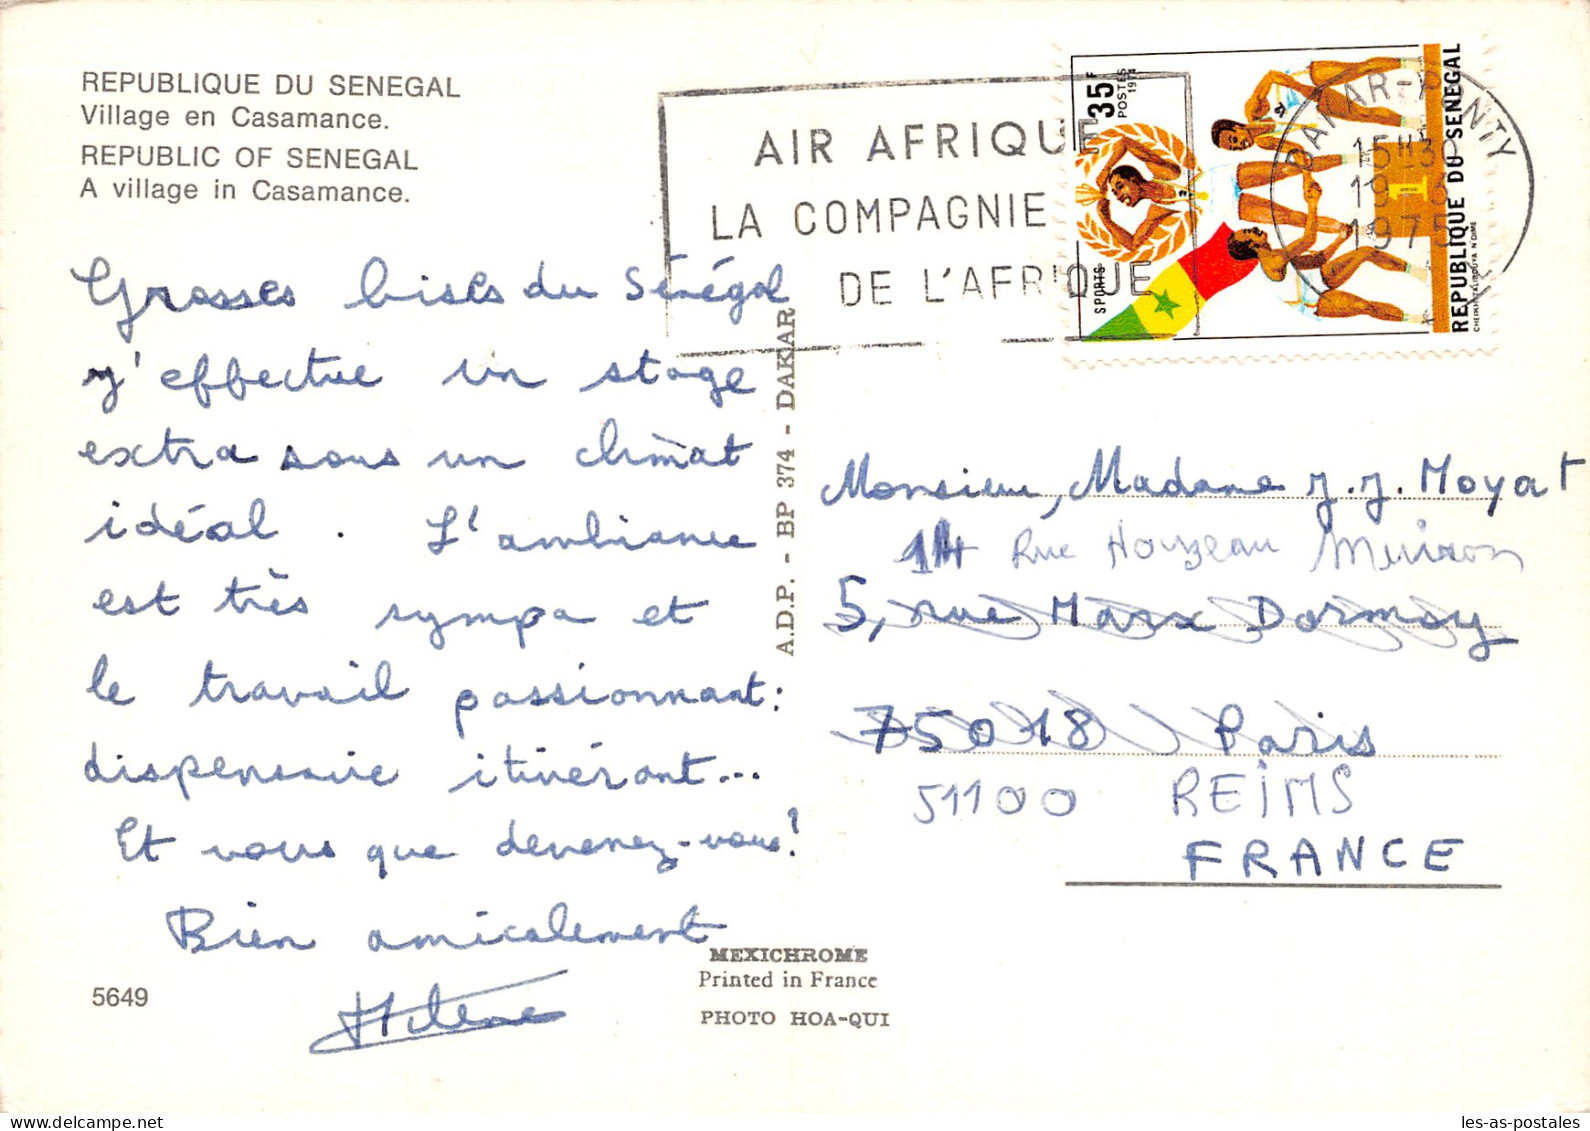 REPUBLIQUE DU SENEGAL
Village en Casamance.
REPUBLIC OF SENEGAL
A village in Casamance.
AIR AFRIQUE
LA COMPAGNIE
DE L'AFRIQUE
35F
POSTES
1974
SPORTS
1
REPUBLIQUE DU SENEGAL
DAKAR-
15H30
1975
Grosses bises du Sénégal
J'effectue un stage
extra sous un climat
idéal. L'ambiance
est très sympa et
le travail passionnant:
dispensaire itinérant...
Et vous que devenez-vous?
Bien amicalement
Hélène
A.D.P. - BP 374 - DAKAR
Monsieur, Madame J.J. Moyat
14 Rue Houzeau Muiron
5, rue Marx Dormoy
75018 Paris
51100 REIMS
FRANCE
5649
MEXICHROME
Printed in France
PHOTO HOA-QUI
les-as-postales